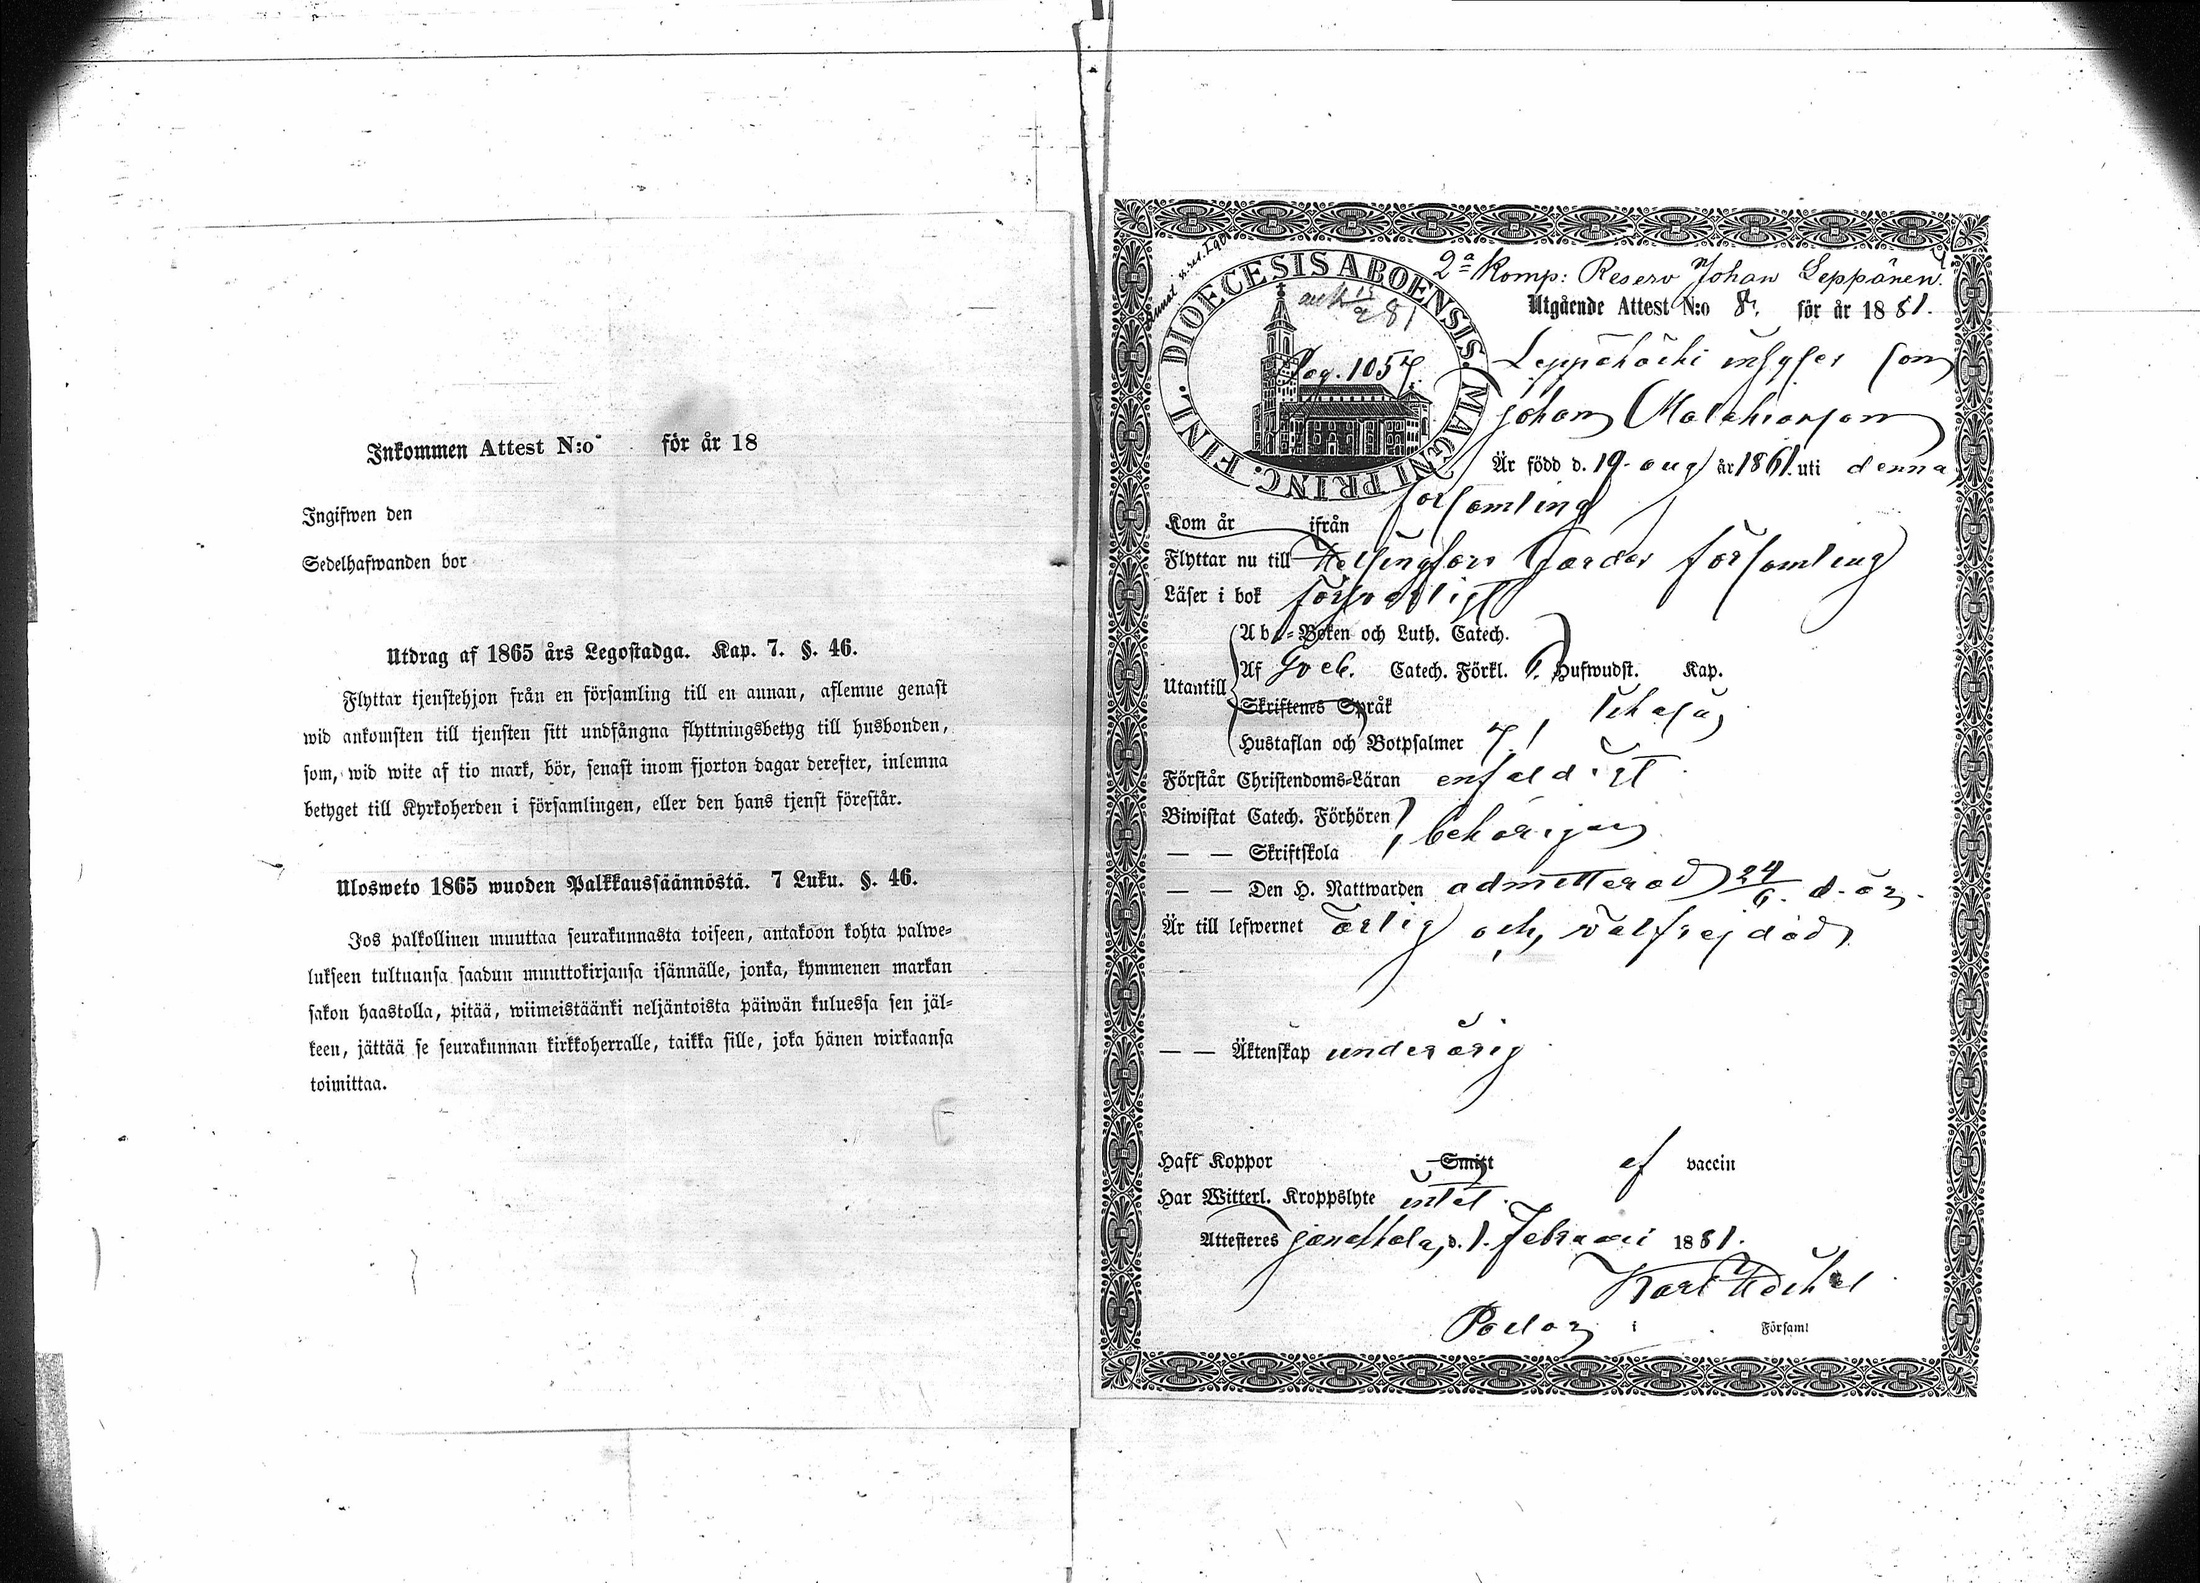 Inkommen Attest N:o för år 18
Ingifwen den
Sedelhafwanden bor
Utdrag af 1865 års Legostadga. Kap. 7. §. 46.
Flyttar tjenstehjon från en församling till en annan, aflemne genast
wid ankomsten till tjensten sitt undfångna flyttningsbetyg till husbonden,
som, wid wite af tio mark, bör, senast inom fjorton dagar derefter, inlemna
betyget till Kyrkoherden i församlingen, eller den hans tjenst förestår.
Ulosweto 1865 wuoden Palkkaussäännöstä. 7 Luku. §. 46.
Jos palkollinen muuttaa seurakunnasta toiseen, antakoon kohta palwe-
lukseen tultuansa saadun muuttokirjansa isännälle, jonka, kymmenen markan
sakon haastolla, pitää, wiimeistäänki neljäntoista päiwän kuluessa sen jäl-
keen, jättää se seurakunnan kirkkoherralle, taikka sille, joka hänen wirkaansa
toimittaa.
DIOECESIS ABOENSIS. MAGNI PRINC. FINL.
2a Komp: Reserv Johan Leppänen
Utgående Attest N:o 8. för år 1881.
Pag. 105
son
Johan
Är född d. 19. aug år 1861. uti denna
församling
Kom år ifrån
Flyttar nu till Helsingfors Gardes församling
Läser i bok försvarligt
Utantill
Abc-Boken och Luth. Catech.
Af Sveb. Catech. Förkl. Hufwudst. Kap.
Skriftenes Språk
Hustaflan och Botpsalmer
Förstår Christendoms-Läran enfaldigt
Biwistat Catech. Förhören behörigen
— — Skriftskola
— — Den H. Nattwarden admitterad 24/6. d. år.
Är till lefwernet ärlig och välfrejdad
— — Äktenskap underårig
Haft Koppor Smitt ef vaccin
Har Witterl. Kroppslyte intet.
Attesteres Janakkala, d. 1. Februari 1881.
Karl
Pastor i Församl